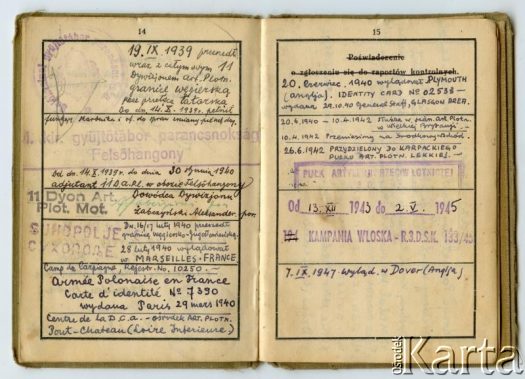 14
19. IX. 1939 przeszedł
wraz z całym swym 11
Dywizjonem Art. Plotn.
granicę węgierską
przez przełęcz tatarską
do 14. X. 1939, pełnił
4. ker. gyüjtőtábor parancsnokság
Felsőhangony
Od dn. 14. X. 1939r. do dnia 30 stycznia 1940
adjutant 11 D.A.PL. w obozie Felsőhangony
11 Dyon Art.
Plot. Mot.
Dowódca Dywizjonu
Łabczyński Aleksander por.
SUHOPOLJE
СУХОПОЉЕ
Dn. 16/17 luty 1940 przeszedł
granicę węgiersko-jugosłowiańską
28 luty 1940 wylądował
w MARSEILLES - FRANCE
Camp de Carpiagne, Rejestr. No, 10250. -
Armée Polonaise en France
Carte d'identité No 7390
wydana Paris 29 mars 1940
Centre de la D.C.A. - OŚRODEK ART. PLOTN.
Pont-Chateau (Loire Inferieure)
15
Poświadczenie
o zgłoszeniu się do raportów kontrolnych.
20. Czerwiec, 1940 wylądował PLYMOUTH
(Anglja). IDENTITY CARD No 02538 -
wydana, 29.10.40 General Staff, GLASGOW AREA.
20.6.1940 - 10.4.1942 Służba w
w Wielkiej Brytanji. -
10.4.1942 Przeniesiony na Środkowy Wschód.
26.6.1942 PRZYDZIELONY DO KARPACKIEGO
PUŁKU ART. PLOTN. LEKKIEJ. -
PUŁK ARTYLERII PRZECIWLOTNICZEJ
Od 13. XII 1943 do 2. V. 1945
194 KAMPANIA WŁOSKA - R.3.D.S.K. 133/45
7. IX. 1947 wyląd. w Dover (Anglja)
ośrodek
Karta